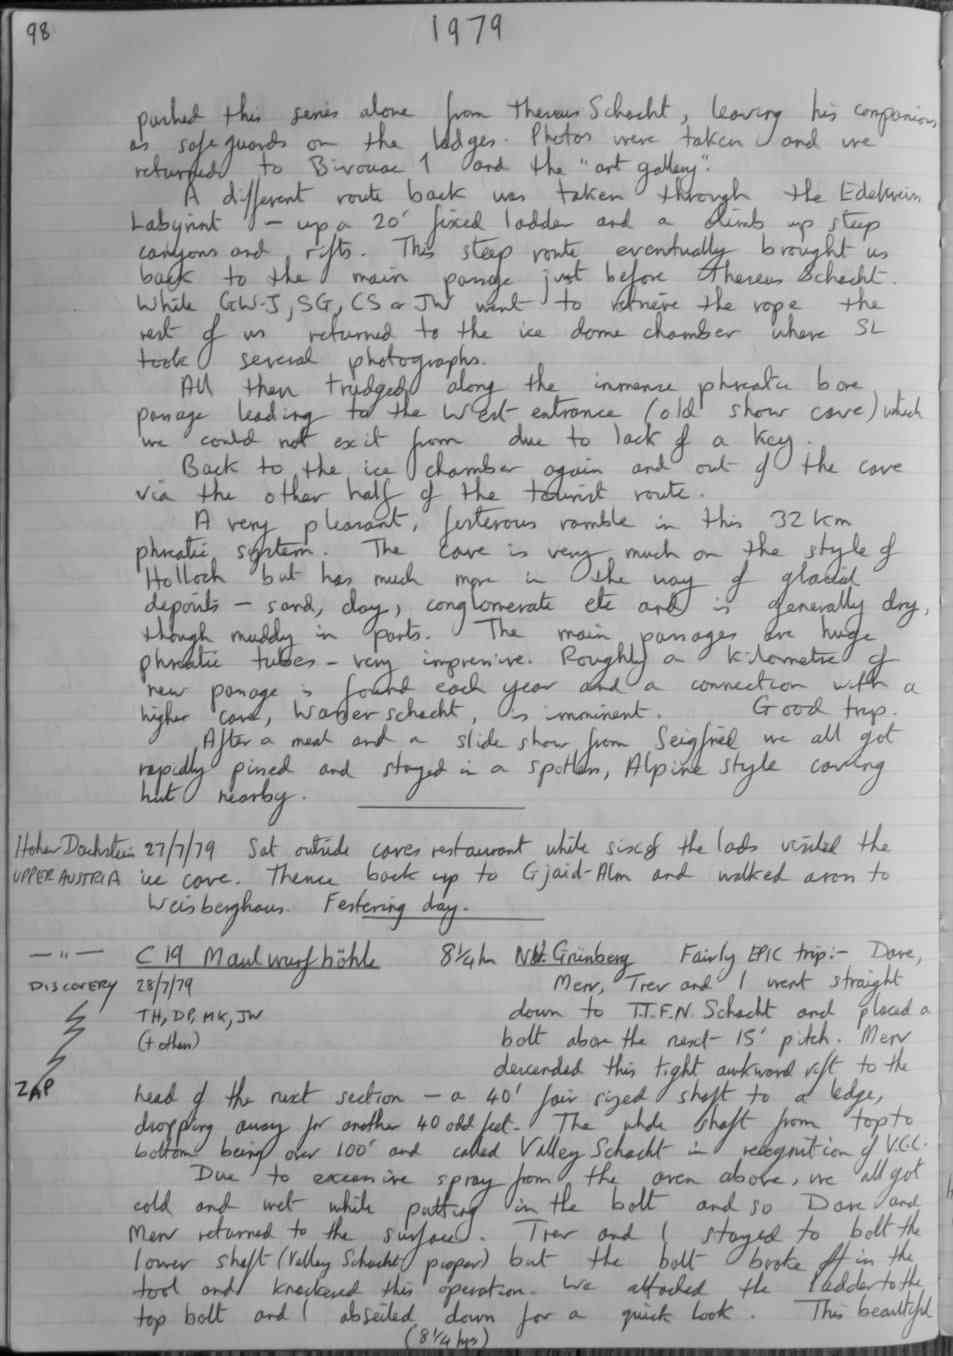 98
1979
pushed this series alone from Thereus Schacht, leaving his companions
as safeguards on the ledges. Photos were taken and we
returned to Bivouac 1 and the "art gallery".
A different route back was taken through the Edelweiss
Labyrint - up a 20' fixed ladder and a climb up steep
canyons and rifts. This steep route eventually brought us
back to the main passage just before Thereus Schacht.
While GW-J, SG, CS or JW went to retrieve the rope the
rest of us returned to the ice dome chamber where SL
took several photographs.
All then trudged along the immense phreatic bore
passage leading to the West entrance (old show cave) which
we could not exit from due to lack of a key.
Back to the ice chamber again and out of the cave
via the other half of the tourist route.
A very pleasant, festerous ramble in this 32 km
phreatic system. The cave is very much on the style of
Holloch but has much more in the way of glacial
deposits - sand, clay, conglomerate etc and is generally dry,
though muddy in parts. The main passages are huge
phreatic tubes - very impressive. Roughly a kilometre of
new passage is found each year and a connection with a
higher cave, Wasserschacht, is imminent. Good trip.
After a meal and a slide show from Seigfried we all got
rapidly pissed and stayed in a spotless, Alpine style caving
hut nearby.
Hoher Dachstein 27/7/79 Sat outside caves restaurant while six of the lads visited the
UPPER AUSTRIA ice cave. Thence back up to Gjaid-Alm and walked across to
Weisberghaus. Festering day.
— " — C19 Maulwurfhöhle 8¼ hrs Nd. Grünberg Fairly EPIC trip:- Dave,
DISCOVERY 28/7/79 Merv, Trev and I went straight
TH, DP, MK, JW down to T.T.F.N. Schacht and placed a
(+ others) bolt above the next 15' pitch. Merv
descended this tight awkward rift to the
ZAP head of the next section - a 40' fair sized shaft to a ledge,
dropping away for another 40 odd feet. The whole shaft from top to
bottom being over 100' and called Valley Schacht in recognition of V.C.C.
Due to excessive spray from the aven above, we all got
cold and wet while putting in the bolt and so Dave and
Merv returned to the surface. Trev and I stayed to bolt the
lower shaft (Valley Schacht proper) but the bolt broke off in the
tool and knackered this operation. We attached the ladder to the
top bolt and I abseiled down for a quick look. This beautiful
(8¼ hrs)